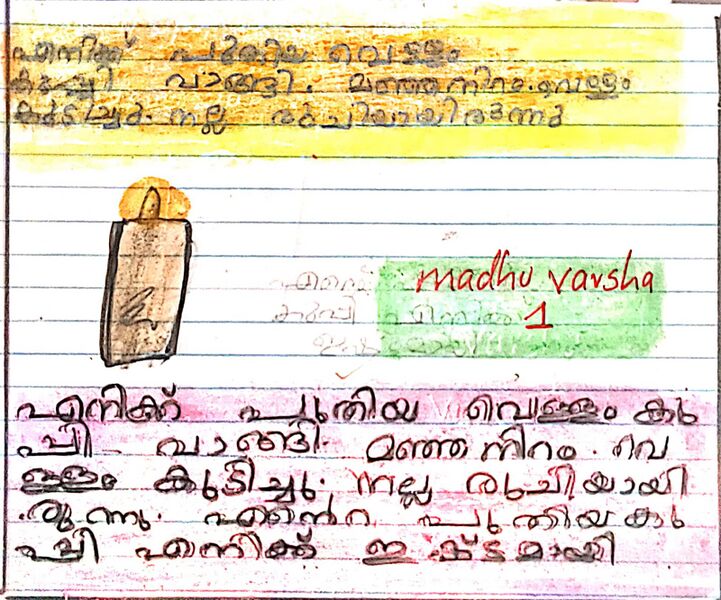 എനിക്ക് പുതിയ വെള്ളം
കുപ്പി വാങ്ങി. മഞ്ഞനിറം. വെള്ളം
കുടിച്ചു. നല്ല രുചിയായിരുന്നു
എന്റെ
കുപ്പി എനിക്ക്
ഇഷ്ടമായി
madhu varsha
1
എനിക്ക് പുതിയ വെള്ളം കു
പ്പി വാങ്ങി. മഞ്ഞ നിറം. വെ
ള്ളം കുടിച്ചു. നല്ല രുചിയായി
രുന്നു. എന്റെ പുതിയ കു
പ്പി എനിക്ക് ഇഷ്ടമായി